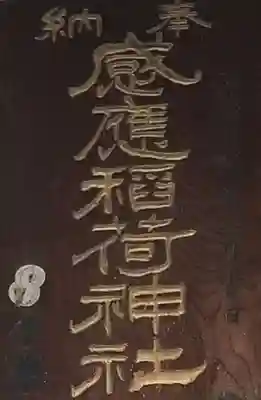 奉納
感應稲荷神社